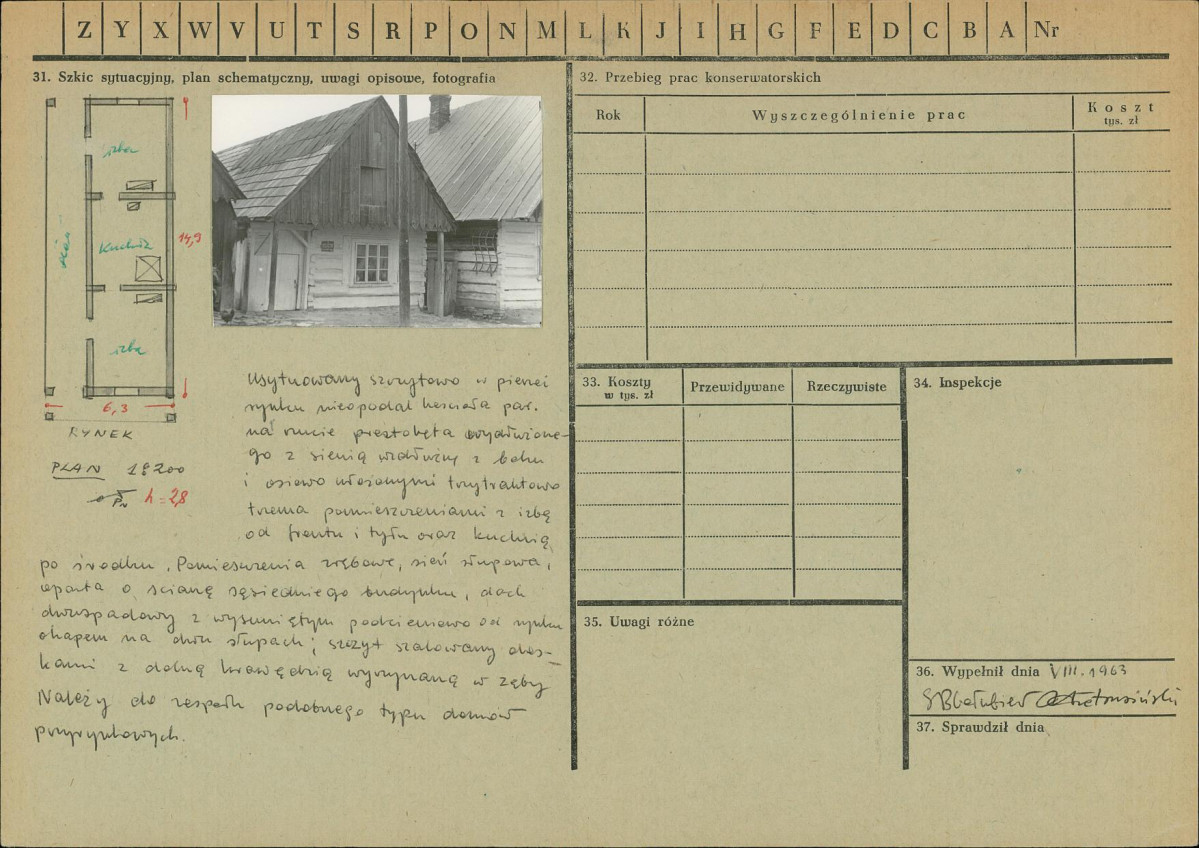 Z Y X W V U T S R P O N M L K J I H G F E D C B A Nr
31. Szkic sytuacyjny, plan schematyczny, uwagi opisowe, fotografia
izba
sień
Kuchnia
14,9
izba
6,3
RYNEK
PLAN 1:200
PN h = 2,8
Usytuowany szczytowo w pierzei
rynku nieopodal kościoła par.
na rzucie prostokąta wydłużone-
go z sienią wzdłużną z boku
i osiowo ułożonymi trzytraktowo
trzema pomieszczeniami z izbą
od frontu i tyłu oraz kuchnią
po środku. Pomieszczenia zrębowe, sień słupowa,
oparta o ścianę sąsiedniego budynku, dach
dwuspadowy z wysuniętym podcieniowo od rynku
okapem na dwu słupach; szczyt szalowany des-
kami z dolną krawędzią wyrzynaną w zęby
Należy do zespołu podobnego typu domów
przyrynkowych.
32. Przebieg prac konserwatorskich
Rok
Wyszczególnienie prac
Koszt
tys. zł
33. Koszty
w tys. zł
Przewidywane
Rzeczywiste
34. Inspekcje
35. Uwagi różne
36. Wypełnił dnia VIII. 1963
37. Sprawdził dnia